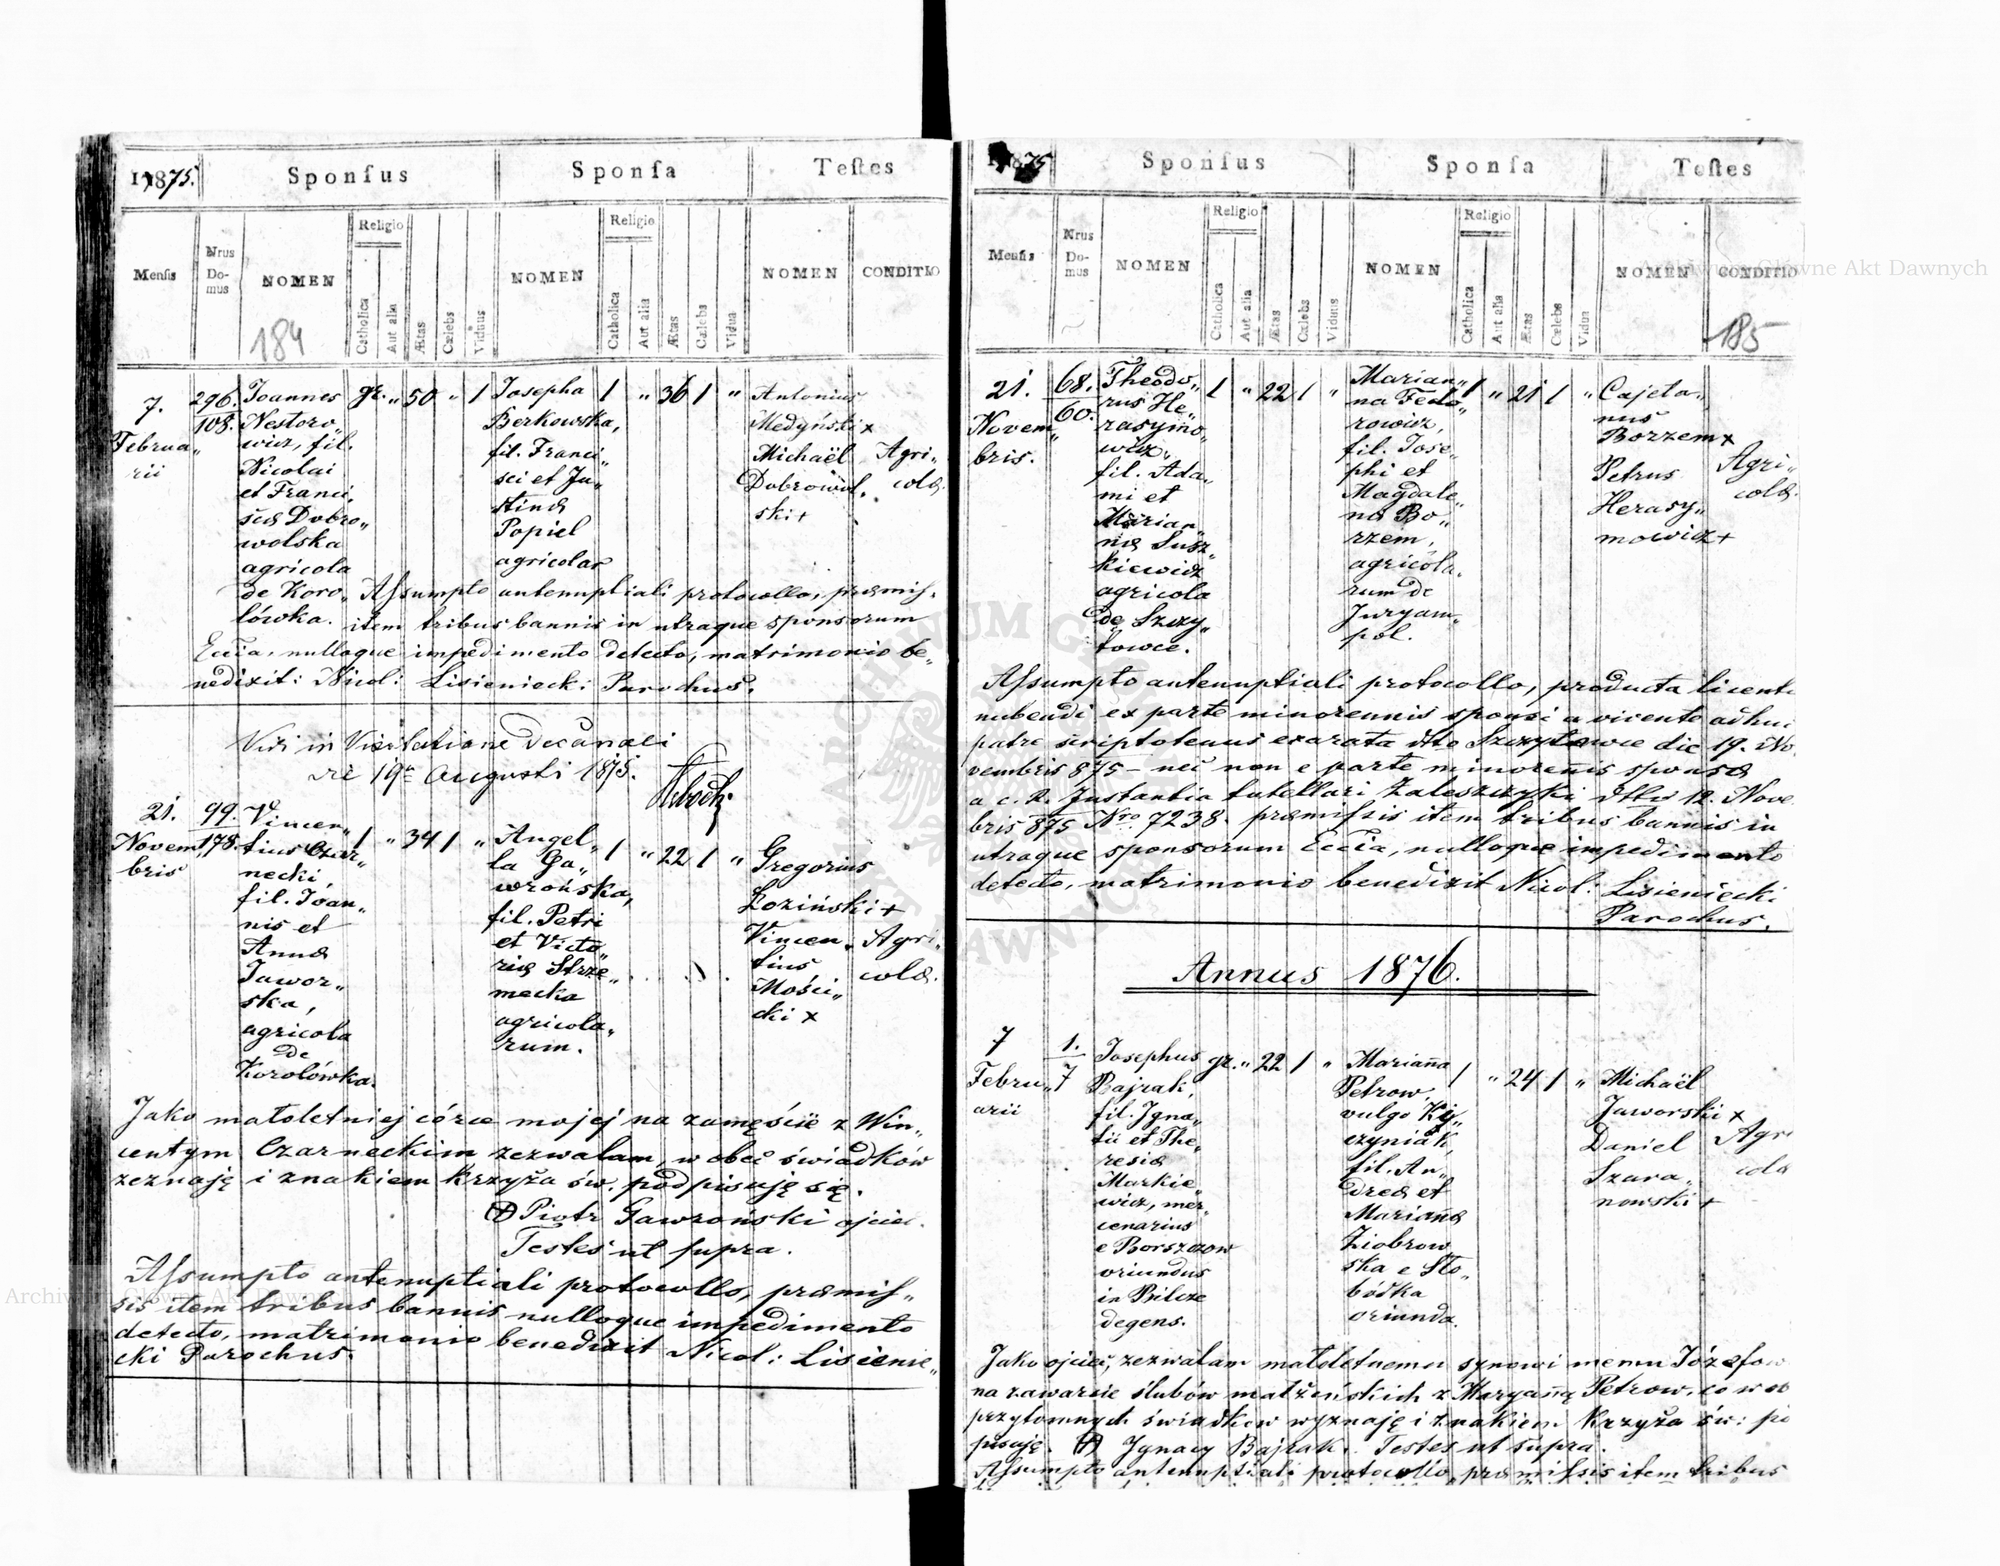 1875.
Sponsus
Sponsa
Testes
Mensis
Nrus Domus
NOMEN
Religio
Catholica
Aut alia
Ætas
Cœlebs
Viduus
NOMEN
Religio
Catholica
Aut alia
Ætas
Cœlebs
Vidua
NOMEN
CONDITIO
184
7.
Februa„
rii
296.
108.
Joannes
Nestoro„
wicz, fil.
Nicolai
et Franci„
scæ Dobro„
wolska
agricola
de Koro„
lówka.
gr. „ 50 „ 1
Josepha
Berkowska,
fil. Franci„
sci et Ju„
stinæ
Popiel
agricolar
1 „ 36 1 „
Antonius
Medyński x
Michaël
Dobrowol„
ski +
Agri„
colæ.
Assumpto antenuptiali protocollo, præmis„
item tribus bannis in utraque sponsorum
Eccia, nulloque impedimento detecto, matrimonio be„
nedixit: Nicol: Lisieniecki Parochus.
Vidi in Visitatione decanali
die 19a Augusti 1875.
21.
Novem„
bris
99.
178.
Vincen„
tius Czar„
necki
fil. Joan„
nis et
Annæ
Jawor„
ska,
agricola
de
Korolówka.
1 „ 34 1 „
Angel„
la Ga„
wrońska,
fil. Petri
et Victo„
riæ Strze„
mecka
agricola„
rum.
1 „ 22 1 „
Gregorius
Łoziński +
Vincen„
tius
Mości„
cki x
Agri„
colæ.
Jako małoletniej córce mojej na zamęście z Win„
centym Czarneckim zezwalam, w obec świadków
zeznaję i znakiem Krzyża św. podpisuję się.
Piotr Gawroński ojciec.
Testes ut supra.
Assumpto antenuptiali protocollo, præmis„
sis item tribus bannis nulloque impedimento
detecto, matrimonio benedixit Nicol: Lisienie„
cki Parochus.
1875
Sponsus
Sponsa
Testes
Mensis
Nrus Domus
NOMEN
Religio
Catholica
Aut alia
Ætas
Cœlebs
Viduus
NOMEN
Religio
Catholica
Aut alia
Ætas
Cœlebs
Vidua
NOMEN
CONDITIO
185
21.
Novem„
bris.
68.
60.
Theodo„
rus He„
rasymo„
wicz,
fil. Ada„
mi et
Marian„
næ Susz„
kiewicz
agricola
de Szczy„
towce.
1 „ 22 1 „
Marian„
na Fedo„
rowicz,
fil. Jose„
phi et
Magdale„
næ Bo„
rzem,
agricola„
rum de
Juryam„
pol.
1 „ 21 1 „
Cajeta„
nus
Borzem x
Petrus
Herasy„
mowicz +
Agri„
colæ.
Assumpto antenuptiali protocollo, producta licent
nubendi ex parte minorennis sponsi a vivente adhuc
patre scriptotenus exarata dtto Szczytowce die 19. No
vembris 875 – nec non e parte minorenis sponsæ
a c. r. Instantia tutellari Zaleszczyki dtto 12. Nove
bris 875 Nro 7238. præmissis item tribus bannis in
utraque sponsorum Eccia, nulloque impedimento
detecto, matrimonio benedixit Nicol: Lisieniecki
Parochus.
Annus 1876.
7
Febru„
arii
1.
7
Josephus
Bajrak,
fil. Igna„
tii et The„
resiæ
Markie„
wicz, mer„
cenarius
e Borszczow
oriundus
in Bilcze
degens.
gr. „ 22 1 „
Marianna
Petrow,
vulgo Kij„
czyniak,
fil. An„
dreæ et
Mariannæ
Ziobrow„
ska e Sło„
bódka
oriunda.
1 „ 24 1 „
Michaël
Jaworski x
Daniel
Szara„
nowski +
Agri
colæ
Jako ojciec, zezwalam małoletnemu synowi memu Józefow
na zawarcie ślubów małżeńskich z Maryanną Petrow, co w ob
przytomnych świadków wyznaję i znakiem Krzyża św: po
pisuję. Ignacy Bajrak. Testes ut supra.
Assumpto antenuptiali protocollo, præmissis item tribus
Archiwum Główne Akt Dawnych
Archiwum Główne Akt Dawnych
ARCHIWUM GŁÓWNE AKT DAWNYCH